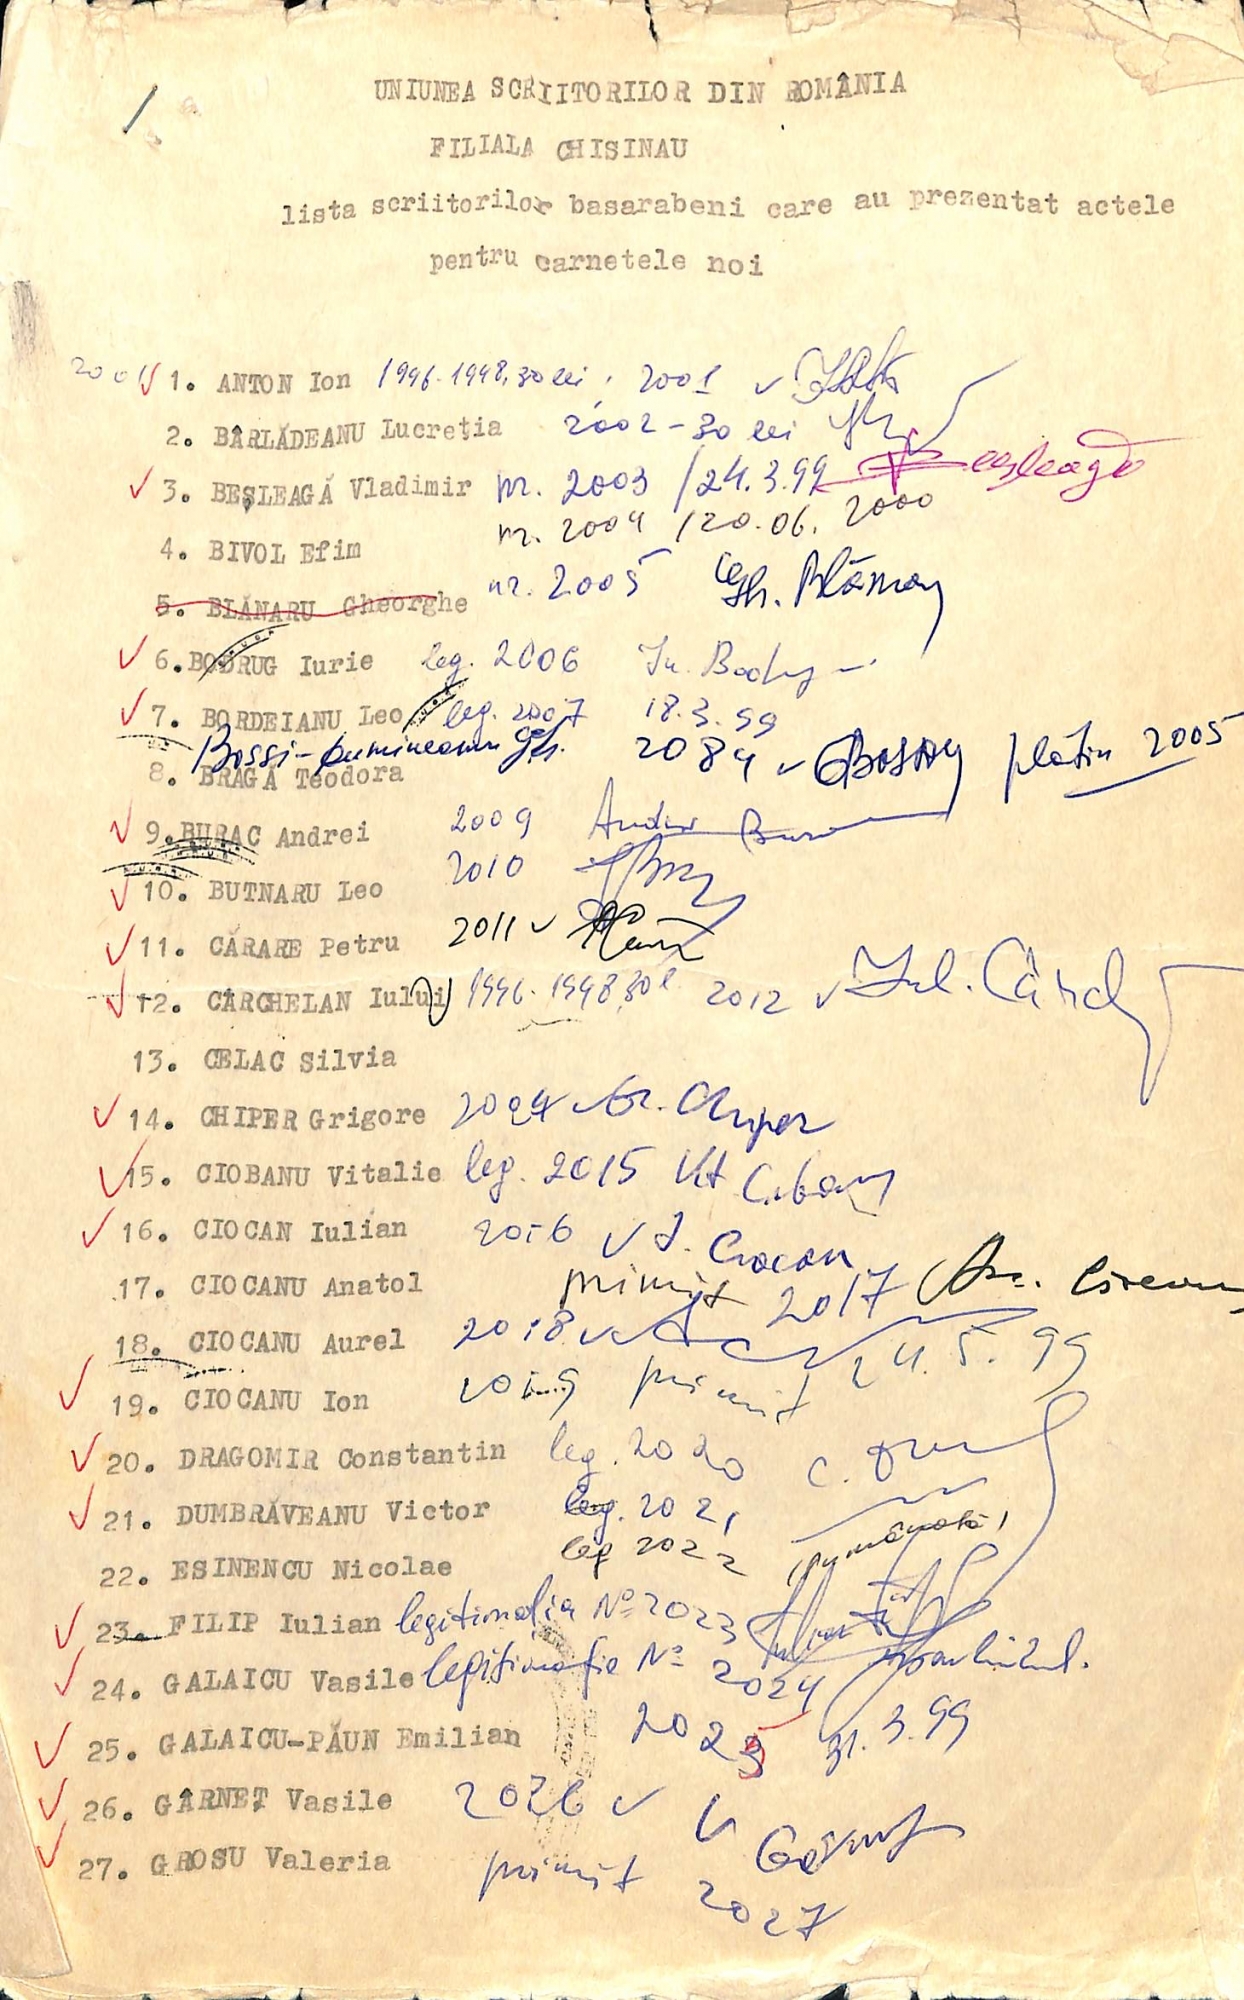 /
UNIUNEA SCRIITORILOR DIN ROMÂNIA
FILIALA CHISINAU
lista scriitorilor basarabeni care au prezentat actele
pentru carnetele noi
2001 1. ANTON Ion 1996-1998, 30 lei, 2001
2. BÂRLĂDEANU Lucreția 2002-30 lei
3. BEȘLEAGĂ Vladimir nr. 2003 /24.3.99 Beșleagă
4. BIVOL Efim nr. 2004 /20.06.2000
5. BLĂNARU Gheorghe nr. 2005 Gh. Blănaru
6. BODRUG Iurie leg. 2006 Iu. Bodrug
7. BORDEIANU Leo leg. 2007 18.3.99
Bossi-Rumineanu 2084 platin 2005
8. BRAGĂ Teodora
9. BURAC Andrei 2009 Andrei Burac
10. BUTNARU Leo 2010
11. CĂRARE Petru 2011
12. CÂRCHELAN Iului 1996-1998, 30 l 2012 Iul. Cârch
13. CELAC Silvia
14. CHIPER Grigore Gr. Chiper
15. CIOBANU Vitalie leg. 2015 Vit Ciobanu
16. CIOCAN Iulian 2016 I. Ciocan
17. CIOCANU Anatol primit 2017
18. CIOCANU Aurel 2018
19. CIOCANU Ion 2019 primit 24.5.99
20. DRAGOMIR Constantin leg. 2020
21. DUMBRĂVEANU Victor leg. 2021
22. ESINENCU Nicolae leg 2022
23. FILIP Iulian legitimația Nº 2023
24. GALAICU Vasile legitimație Nº 2024
25. GALAICU-PĂUN Emilian 2025 31.3.99
26. GÂRNEȚ Vasile 2026 V Gârneț
27. GROSU Valeria primit 2027